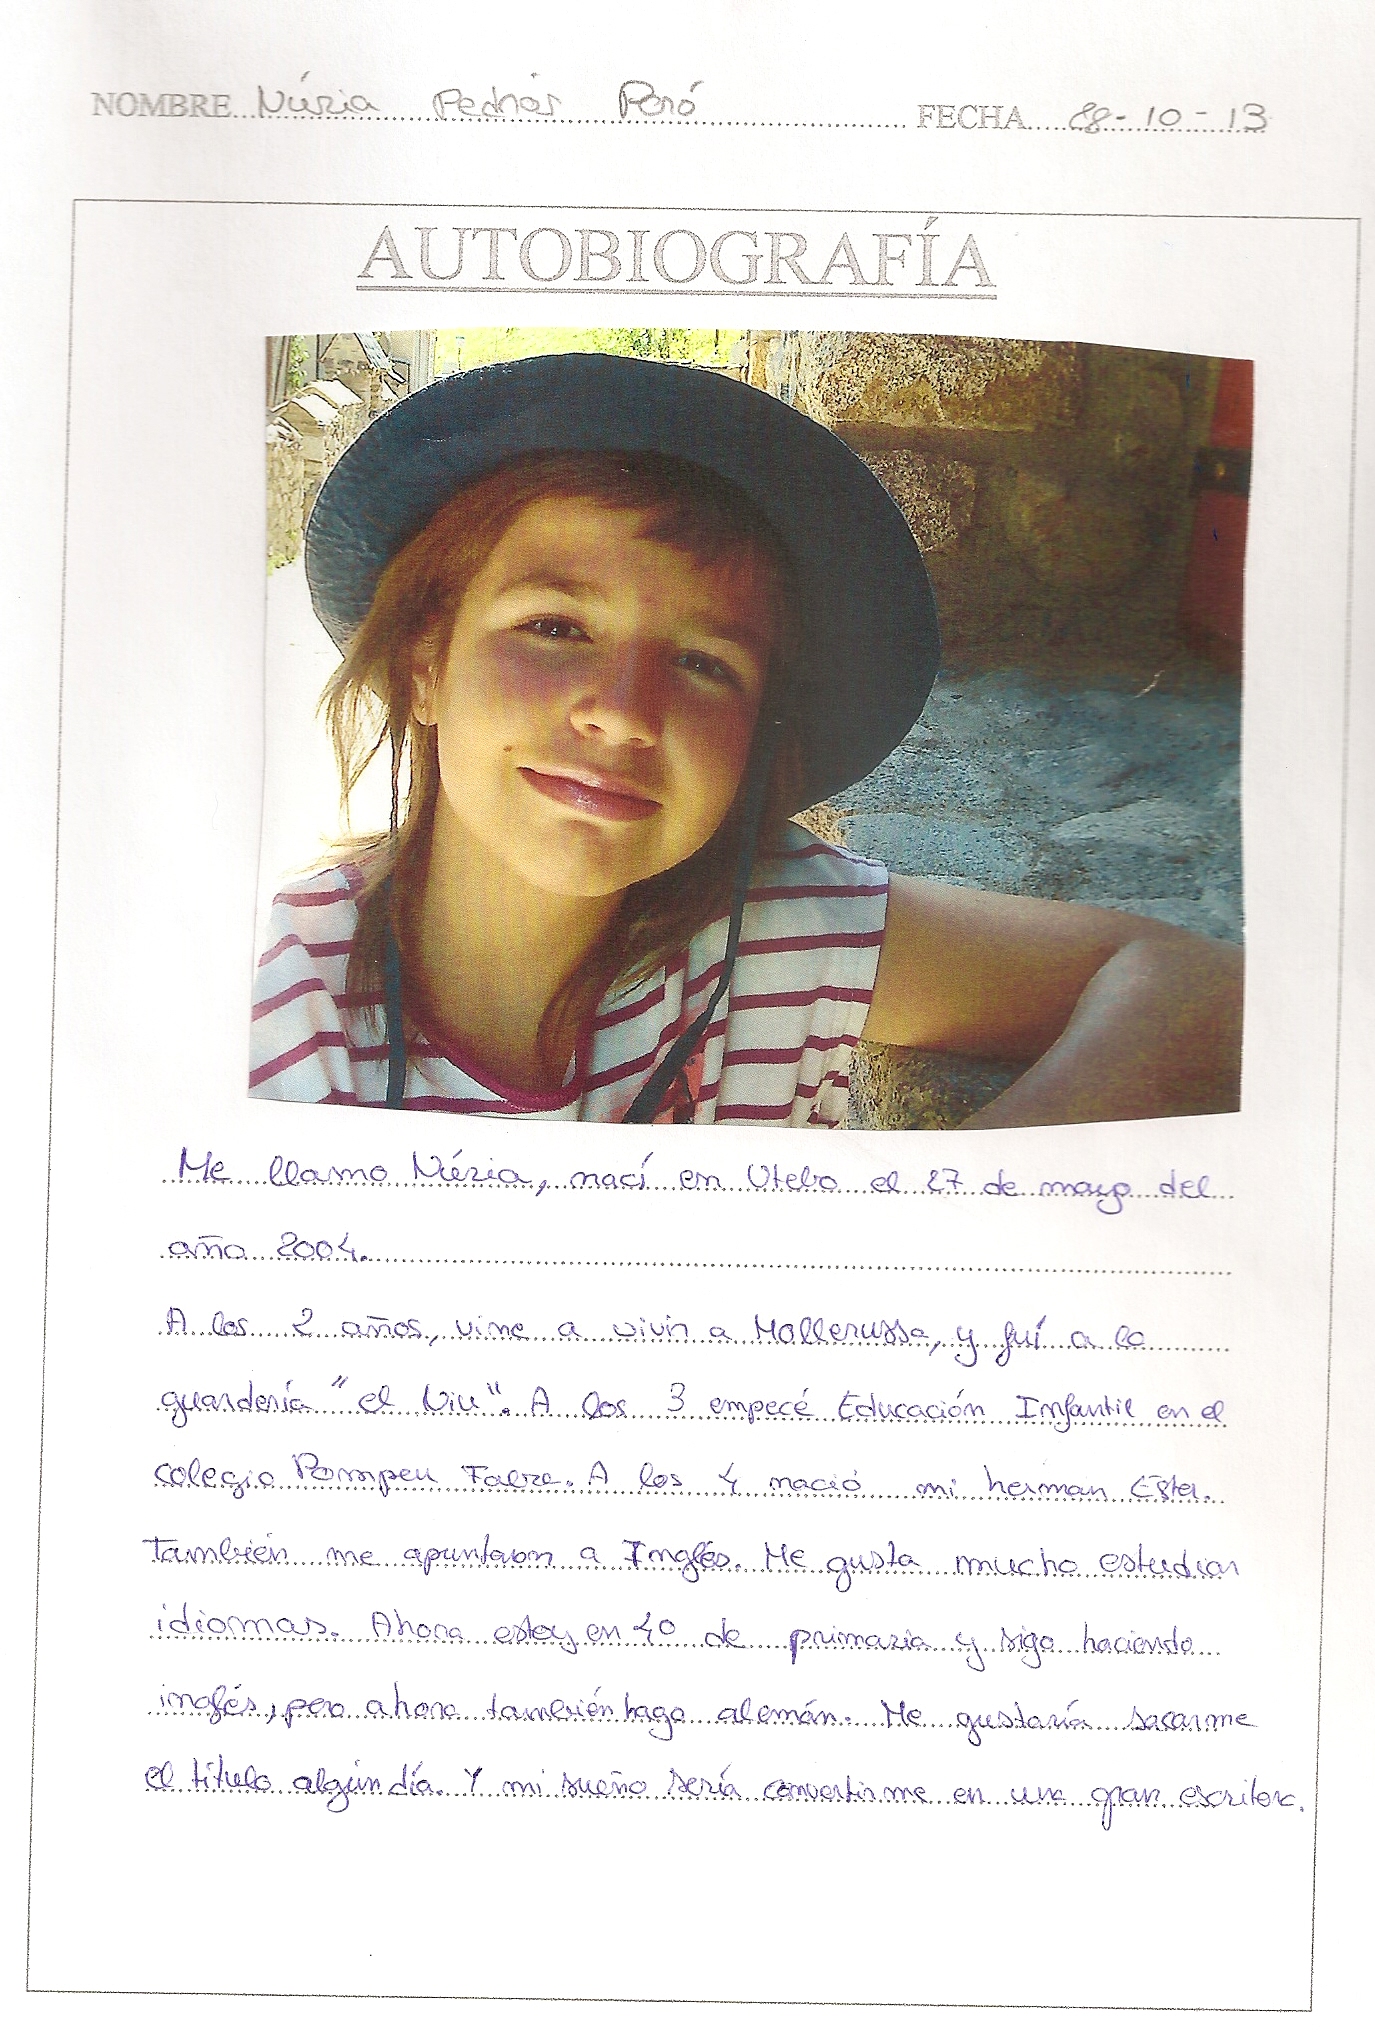 NOMBRE Núria Pedrós Poró FECHA 28-10-13
AUTOBIOGRAFÍA
Me llamo Núria, nací en Utebo el 27 de mayo del
año 2004.
A los 2 años, vine a vivir a Mollerussa, y fuí a la
guardería "el Niu". A los 3 empecé Educación Infantil en el
colegio Pompeu Fabra. A los 4 nació mi herman Ester.
También me apuntaron a Inglés. Me gusta mucho estudiar
idiomas. Ahora estoy en 4o de primaria y sigo haciendo
inglés, pero ahora también hago alemán. Me gustaría sacarme
el título algún día. Y mi sueño sería convertirme en una gran escritora.